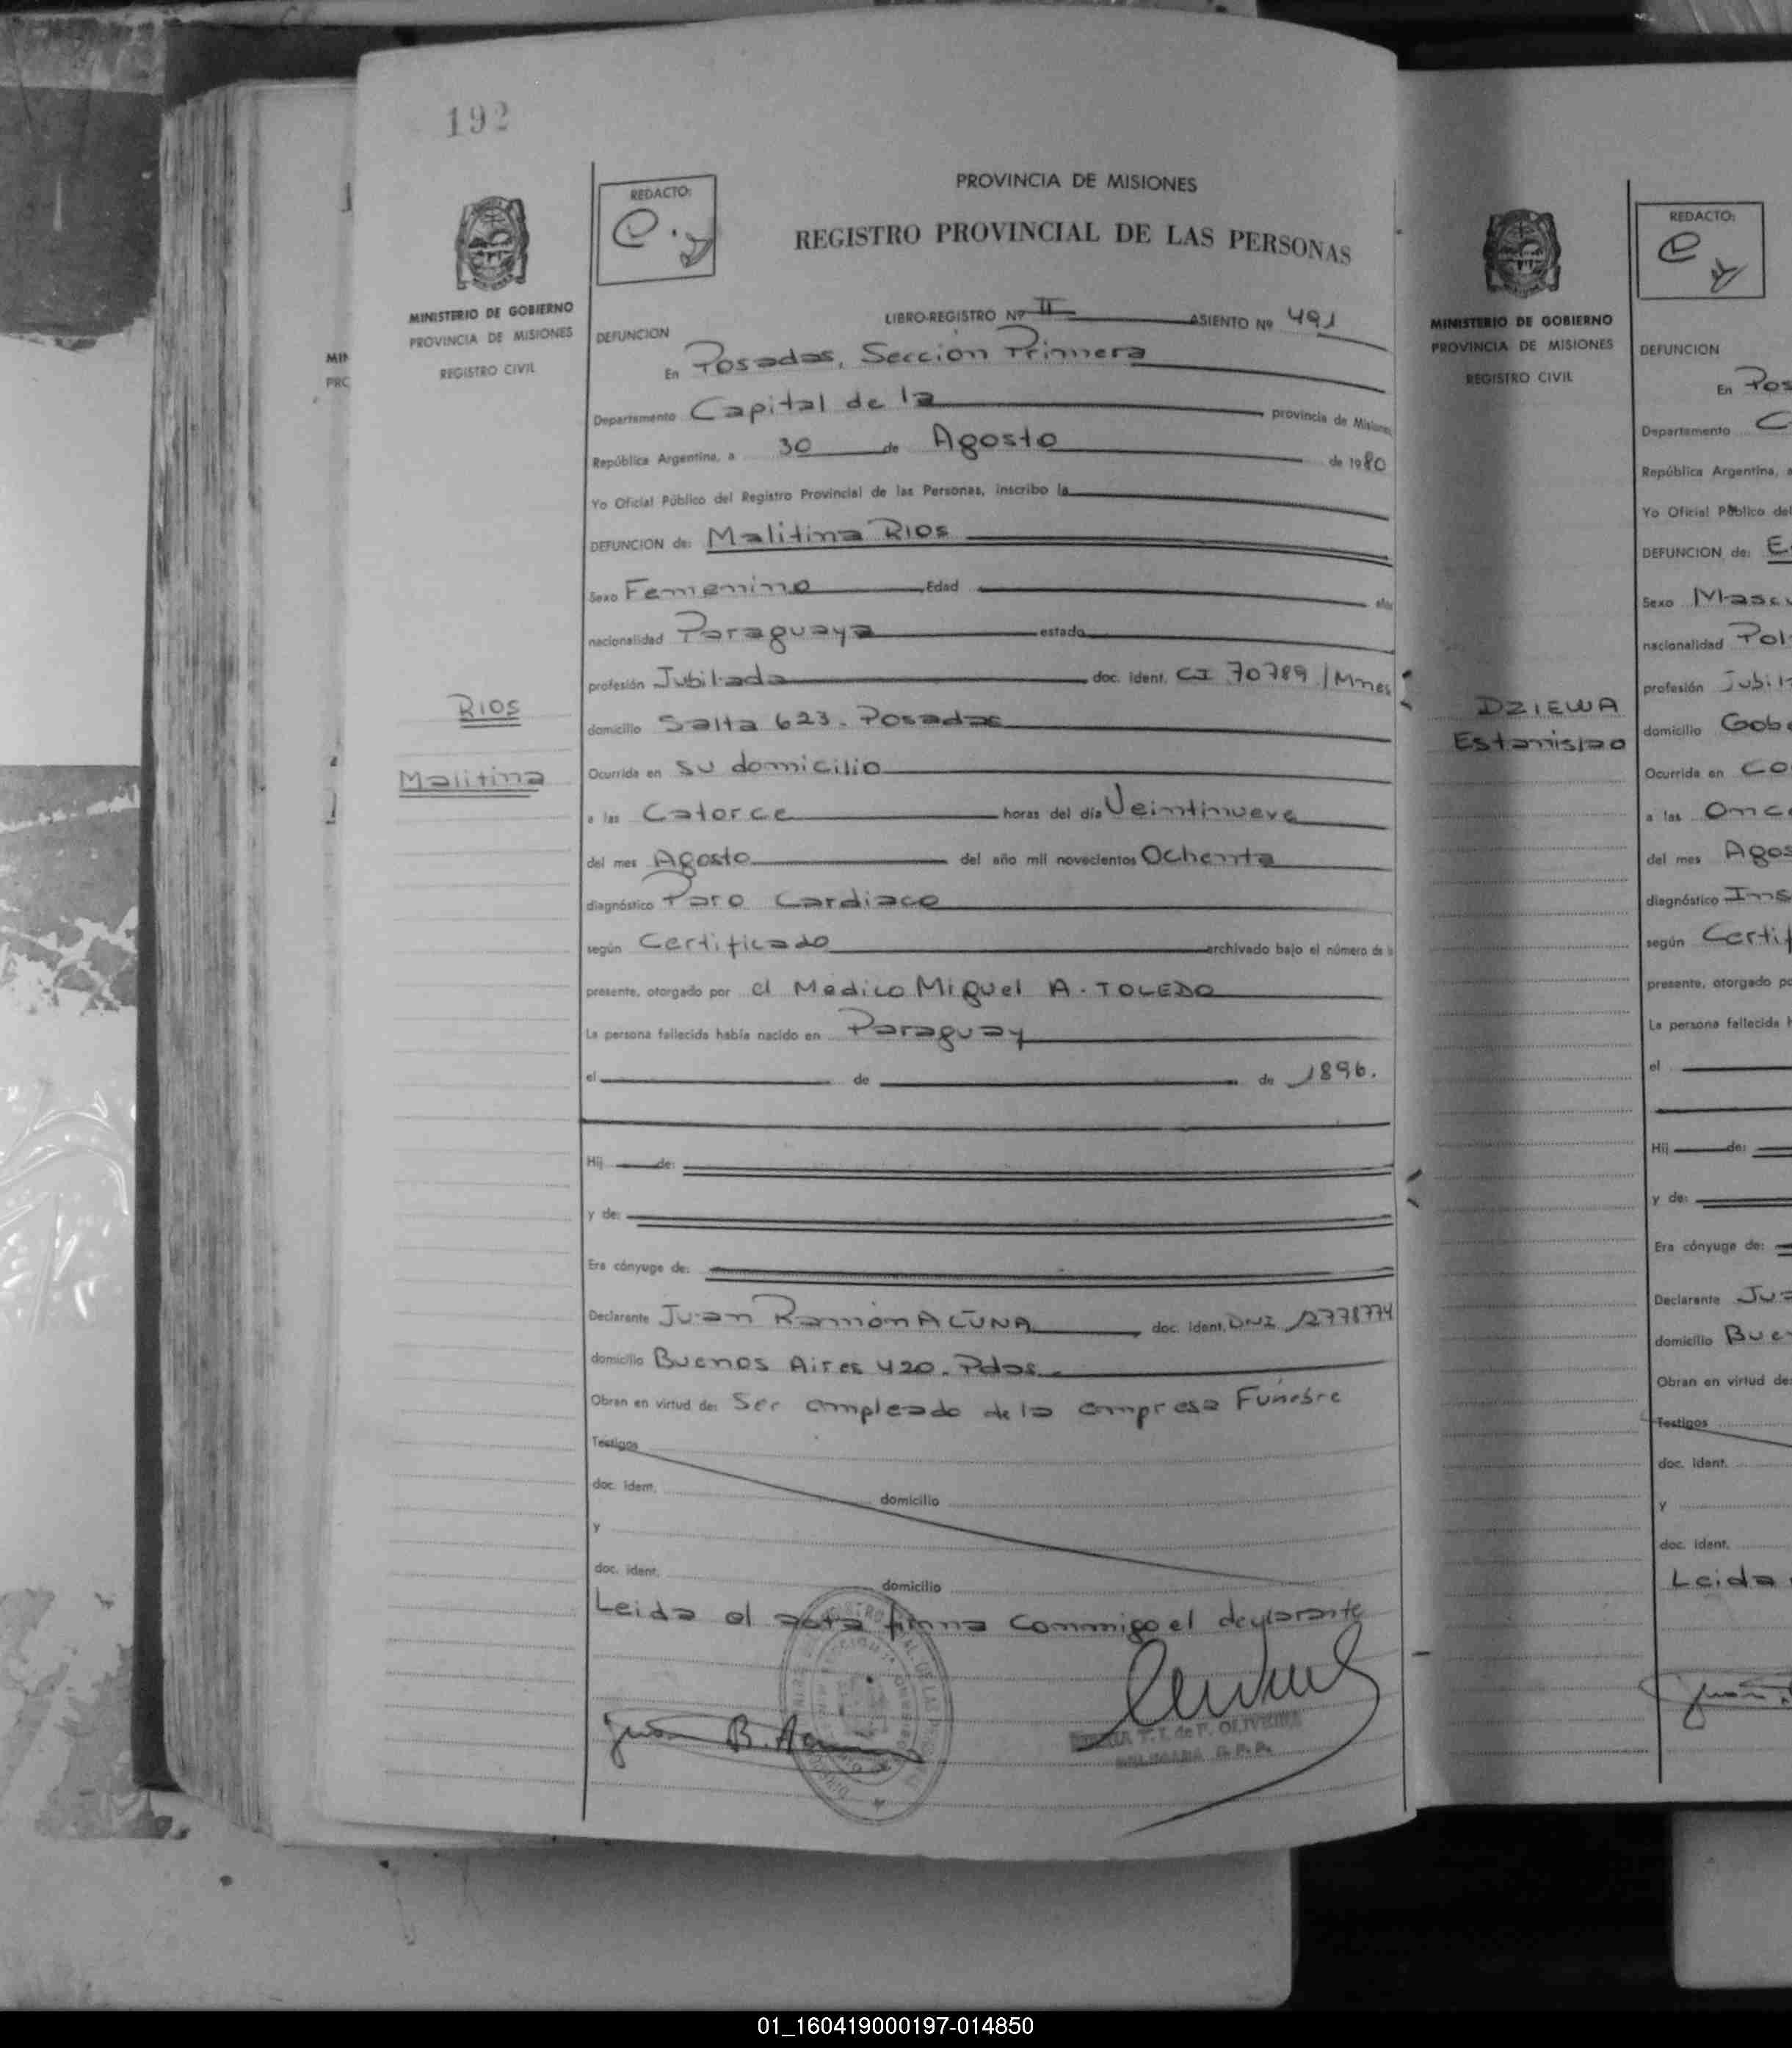 192
REDACTO:
PROVINCIA DE MISIONES
REGISTRO PROVINCIAL DE LAS PERSONAS
MINISTERIO DE GOBIERNO
PROVINCIA DE MISIONES
REGISTRO CIVIL
LIBRO-REGISTRO Nº II ASIENTO Nº 491
DEFUNCION
En Posadas, Sección Primera
Departamento Capital de la provincia de Misiones
República Argentina, a 30 de Agosto de 1980
Yo Oficial Público del Registro Provincial de las Personas, inscribo la
DEFUNCION de: Malitina RIOS
Sexo Femenino Edad años
nacionalidad Paraguaya estado
profesión Jubilada doc. ident. CI 70789 / Mnes
RIOS
domicilio Salta 623. Posadas
Malitina
Ocurrida en su domicilio
a las Catorce horas del día Veintinueve
del mes Agosto del año mil novecientos Ochenta
diagnóstico Paro Cardiaco
según Certificado archivado bajo el número de la
presente, otorgado por el Medico Miguel A. TOLEDO
La persona fallecida había nacido en Paraguay
el de de 1896.
Hij de:
y de:
Era cónyuge de:
Declarante Juan Ramón ACUÑA doc. ident. DNI 12778774
domicilio Buenos Aires 420. Pdas.
Obran en virtud de: Ser empleado de la empresa Fúnebre
Testigos
doc. ident. domicilio
y
doc. ident. domicilio
Leida el acta firma conmigo el declarante
Juan
T. I. de F. OLIVEIRA
MINISTERIO DE GOBIERNO
PROVINCIA DE MISIONES
REGISTRO CIVIL
DZIEWA
Estanislao
REDACTO:
DEFUNCION
En Pos
Departamento C
República Argentina, a
Yo Oficial Público del
DEFUNCION de: E
Sexo Masc
nacionalidad Pol
profesión Jubil
domicilio Gob
Ocurrida en Co
a las Once
del mes Agos
diagnóstico Ins
según Certif
presente, otorgado po
La persona fallecida h
el
Hij de:
y de:
Era cónyuge de:
Declarante Jua
domicilio Bue
Obran en virtud de:
Testigos
doc. ident.
y
doc. ident.
Leida
01_160419000197-014850